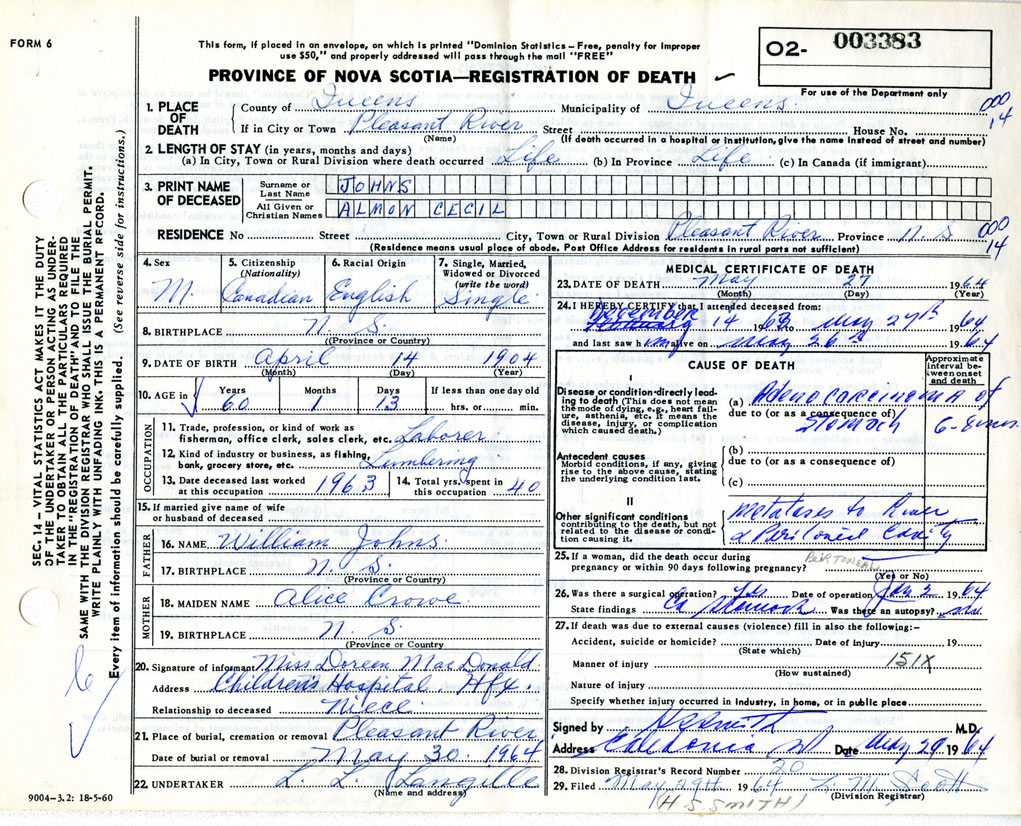 FORM 6
This form, if placed in an envelope, on which is printed "Dominion Statistics – Free, penalty for improper
use $50," and properly addressed will pass through the mail "FREE"
O2- 003383
For use of the Department only
PROVINCE OF NOVA SCOTIA—REGISTRATION OF DEATH
000
14
1. PLACE OF DEATH { County of Queens Municipality of Queens
If in City or Town Pleasant River Street House No.
(Name) (If death occurred in a hospital or institution, give the name instead of street and number)
2. LENGTH OF STAY (in years, months and days)
(a) In City, Town or Rural Division where death occurred Life (b) In Province Life (c) In Canada (if immigrant)
3. PRINT NAME OF DECEASED { Surname or Last Name JOHNS
All Given or Christian Names ALMON CECIL
RESIDENCE No Street City, Town or Rural Division Pleasant River Province N. S.
000
14
(Residence means usual place of abode. Post Office Address for residents in rural parts not sufficient)
4. Sex
M.
5. Citizenship
(Nationality)
Canadian
6. Racial Origin
English
7. Single, Married,
Widowed or Divorced
(write the word)
Single
8. BIRTHPLACE N. S.
((Province or Country)
9. DATE OF BIRTH April 14 1904
(Month) (Day) (Year)
10. AGE in Years Months Days If less than one day old
60 1 13 hrs. or min.
OCCUPATION
11. Trade, profession, or kind of work as
fisherman, office clerk, sales clerk, etc. Laborer
12. Kind of industry or business, as fishing,
bank, grocery store, etc. Lumbering
13. Date deceased last worked
at this occupation 1963
14. Total yrs. spent in
this occupation 40
15. If married give name of wife
or husband of deceased
FATHER
16. NAME William Johns
17. BIRTHPLACE N. S.
(Province or Country)
MOTHER
18. MAIDEN NAME Alice Crowe
19. BIRTHPLACE N. S.
(Province or Country)
20. Signature of informant Miss Doreen MacDonald
Address Children's Hospital Hfx.
Relationship to deceased Niece
21. Place of burial, cremation or removal Pleasant River
Date of burial or removal May 30. 1964
22. UNDERTAKER L. L. Langille
(Name and address)
MEDICAL CERTIFICATE OF DEATH
23. DATE OF DEATH May 27 1964
(Month) (Day) (Year)
24. I HEREBY CERTIFY that I attended deceased from:
December 14 1963 to May 27th 1964
and last saw him alive on May 26th 1964
CAUSE OF DEATH
Approximate
interval be-
tween onset
and death
I
Disease or condition directly lead-
ing to death (This does not mean
the mode of dying, e.g., heart fail-
ure, asthenia, etc. It means the
disease, injury, or complication
which caused death.)
(a) Adenocarcinoma of
due to (or as a consequence of)
Stomach 6-8 mos
Antecedent causes
Morbid conditions, if any, giving
rise to the above cause, stating
the underlying condition last.
(b)
due to (or as a consequence of)
(c)
II
Other significant conditions
contributing to the death, but not
related to the disease or condi-
tion causing it.
to
& Peritoneal Cavity
PERITONEAL
25. If a woman, did the death occur during
pregnancy or within 90 days following pregnancy?
(Yes or No)
26. Was there a surgical operation? Yes Date of operation Jan 2 1964
State findings Ca Stomach Was there an autopsy?
27. If death was due to external causes (violence) fill in also the following:-
Accident, suicide or homicide? Date of injury 19
(State which)
Manner of injury 151X
(How sustained)
Nature of injury
Specify whether injury occurred in industry, in home, or in public place
Signed by HSSmith M.D.
Address Caledonia Date May 29 1964
28. Division Registrar's Record Number 20
29. Filed May 29th 1964 L. M. Scott
(H. S. SMITH) (Division Registrar)
SEC. 14 – VITAL STATISTICS ACT MAKES IT THE DUTY
OF THE UNDERTAKER OR PERSON ACTING AS UNDER-
TAKER TO OBTAIN ALL THE PARTICULARS REQUIRED
IN THE "REGISTRATION OF DEATH" AND TO FILE THE
SAME WITH THE DIVISION REGISTRAR WHO SHALL ISSUE THE BURIAL PERMIT.
WRITE PLAINLY WITH UNFADING INK. THIS IS A PERMANENT RECORD.
Every item of information should be carefully supplied. (See reverse side for instructions.)
9004-3.2: 18-5-60